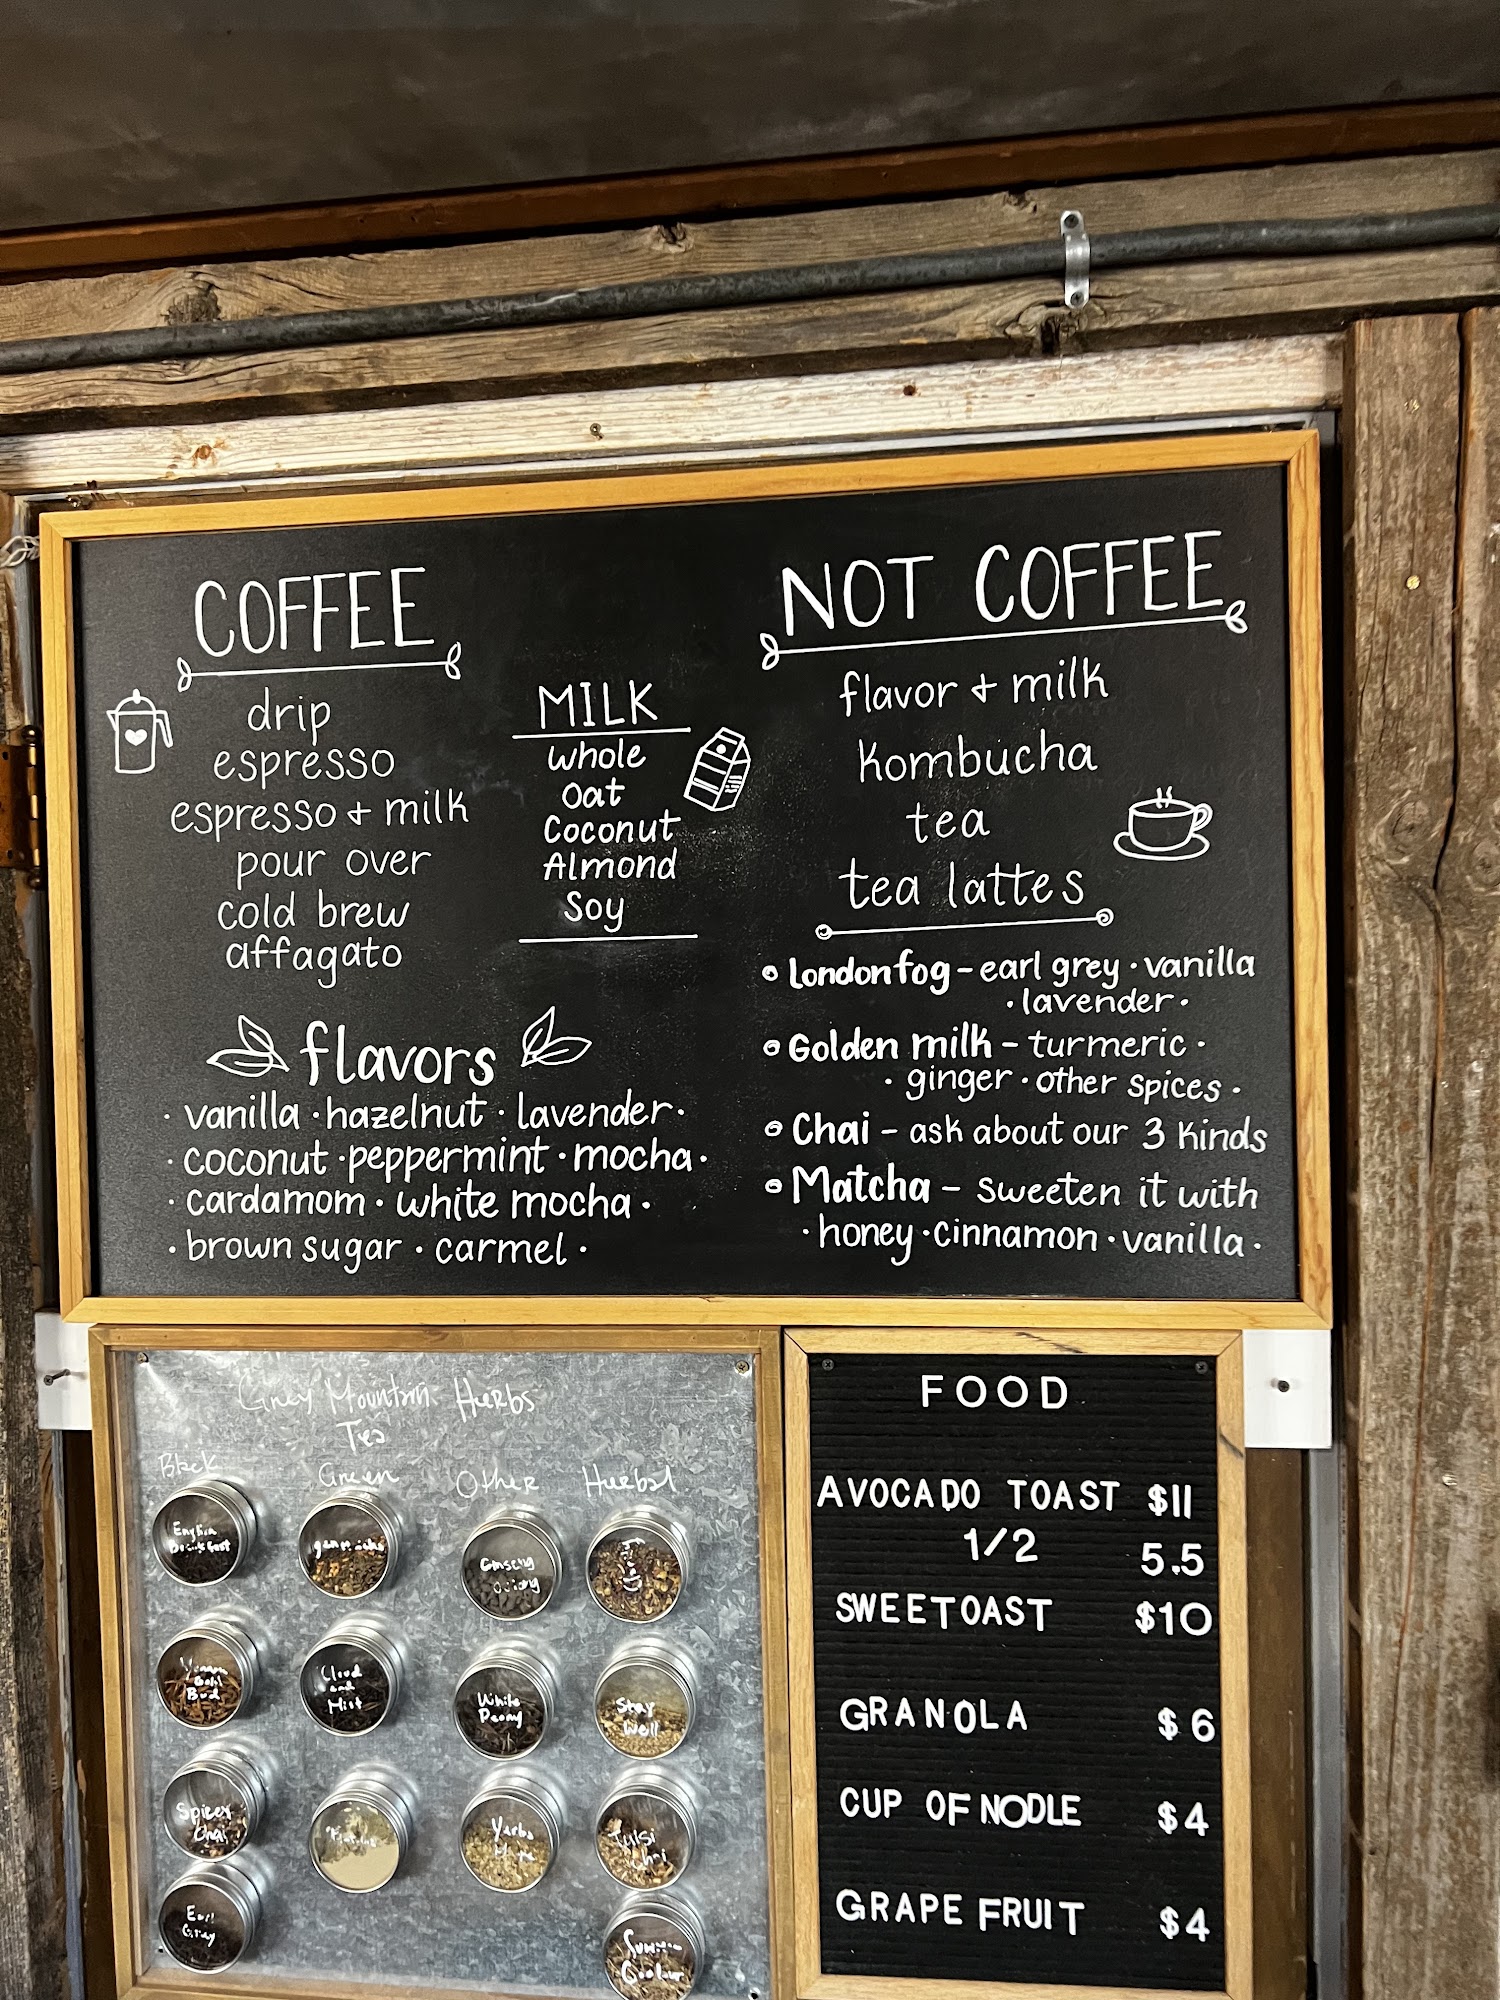 COFFEE
drip
espresso
espresso + milk
pour over
cold brew
affagato
MILK
Whole
Oat
Coconut
Almond
Soy
flavors
· vanilla · hazelnut · lavender ·
· coconut · peppermint · mocha ·
· cardamom · white mocha ·
· brown sugar · carmel ·
NOT COFFEE
flavor + milk
kombucha
tea
tea lattes
Londonfog - earl grey · vanilla
· lavender ·
Golden milk - turmeric ·
· ginger · other spices ·
Chai - ask about our 3 kinds
Matcha - sweeten it with
· honey · cinnamon · vanilla ·
Grey Mountain Herbs
Tea
Black
English
Breakfast
Gold
Bud
Spicey
Chai
Earl
Grey
Green
genmaicha
Cloud
and
Mist
Other
Ginseng
Oolong
White
Peony
Yerba
Mate
Herbal
Stay
Well
Tulsi
Chai
FOOD
AVOCADO TOAST $11
1/2 5.5
SWEETOAST $10
GRANOLA $6
CUP OF NODLE $4
GRAPE FRUIT $4